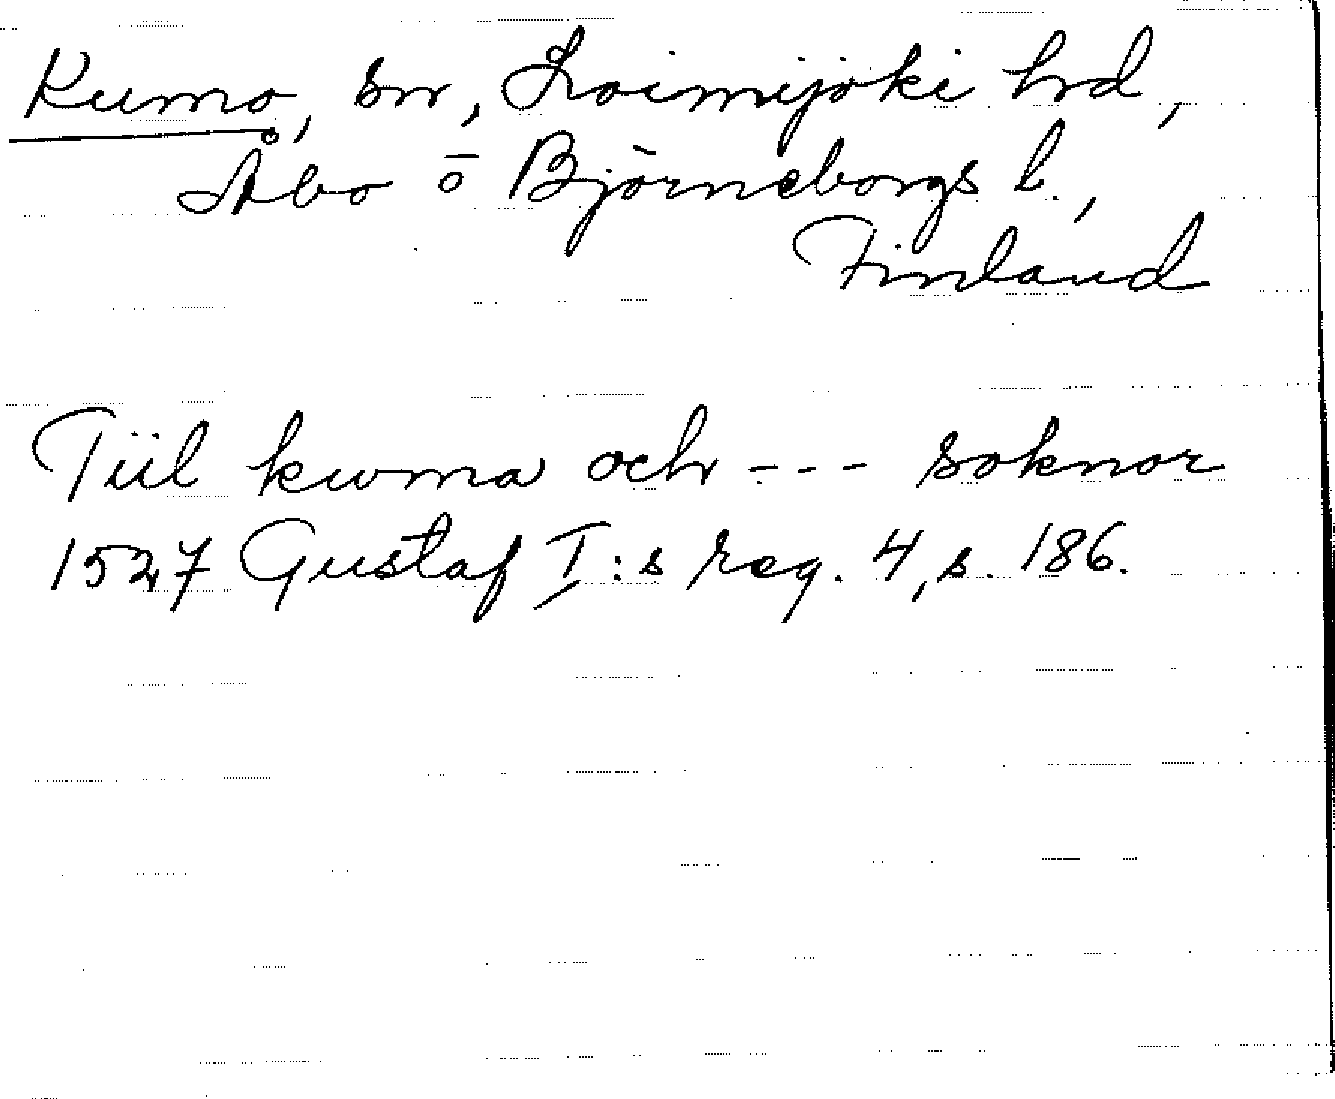 Kumo, sn, Loimijoki hrd,
Åbo o Björneborgs l.,
Finland
Tiil kwma och --- soknor
1527 Gustaf I:s reg. 4, s. 186.